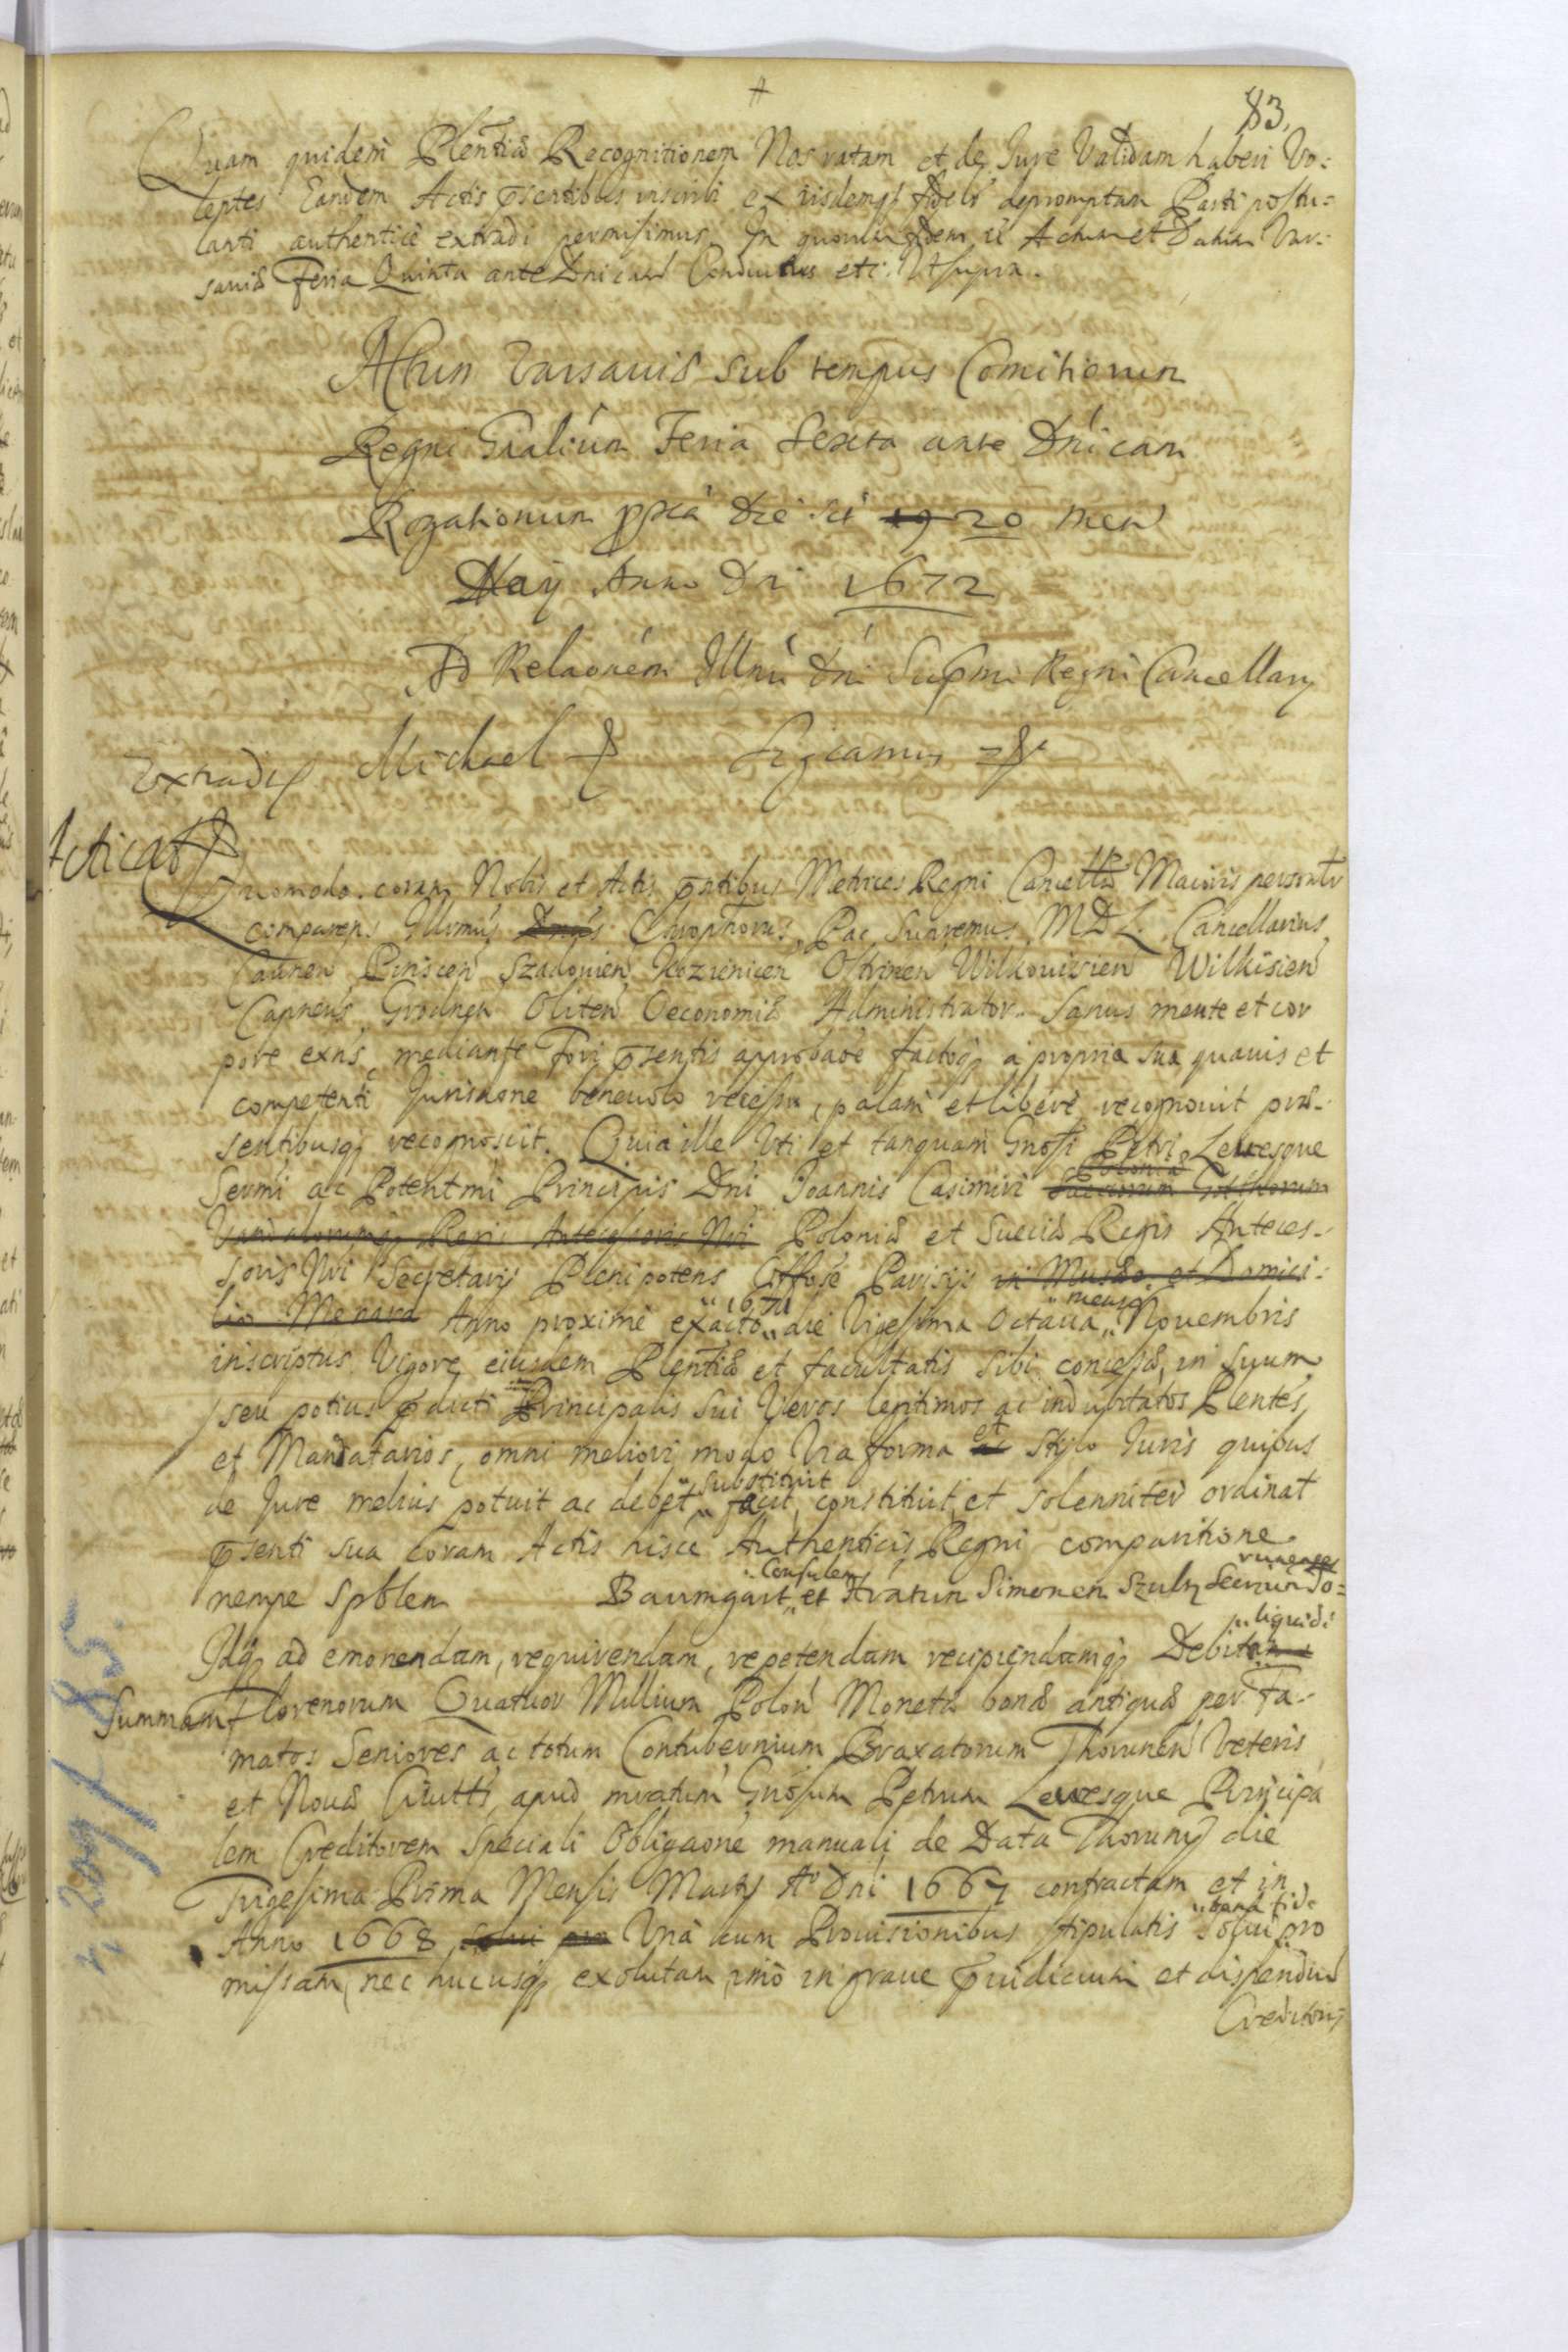 83.
Quam quidem Plentiæ Recognitionem Nos ratam et de Jure Validam haberi Vo-
lentes Eandem Actis pñtibus inscribi ex iisdemq fideli depromptam Parti postu-
lanti authenticè extradi permisimus. In quorum fidem etc Actum et Datum Var-
saviæ Feria Quinta ante Dnicam Conductus etc. Ut supra.
Actum Varsaviæ sub tempus Comitiorum
Regni Gralium Feria Sexta ante Dnicam
Rogationum ppria die sci 19 20 men
Maij Anno Dni 1672
Ad Relaonem Illmi Dni Supmi Regni Cancellarij
Extradi Michael
Acticat
Quomodo coram Nobis et Actis pñtibus Metrices Regni Cancellæ Maioris personalr
comparens Illrmus Dnus Chrophorus Pac Supremus MDL Cancellarius
Caunen Pinscen Szadovien Kozienicen Ostrinen Wilkoviscien Wilkisien
Capneus Grodnen Oliten Oeconomiæ Administrator. Sanus mente et cor
pore exns, mediante Fori pñsentis approbaõe factoq à propria sua quavis et
competenti Jurisdaone benevolo recessu, palam et liberè recognovit præ-
sentibusq recognoscit. Quia ille Uti et tanquam Gnosi Petri Levesque
Sermi ac Potentmi Principis Dni Joannis Casimiri Poloniæ Gotthorum
Vandalorumq Regis Antecessoris Nri Poloniæ et Sueciæ Regis Anteces-
soris Nri Secretarij Plenipotens Parisijs in Musæo et Domici-
lio Anno proximè exacto 1671 die Vigesima Octava mensis Novembris
inscriptus Vigore eiusdem Plentiæ et facultatis sibi concessæ, in suum
seu potius pdicti Principalis sui Veros legitimos ac indubitatos Plentes,
et Mandatarios, omni meliori modo Via forma ac et stylo Juris quibus
de Jure melius potuit ac debet substituit fecit, constituit, et solenniter ordinat
pñsenti sua coram Actis hisce Authenticis Regni comparitione
nempe Spblem Baumgart Consulem et Hratum Simonem Szulz
Idq ad emonendam, requirendam, repetendam recipiendamq Debitam liquidi
Summam Florenorum Quatuor Millium Polon Monetæ bonæ antiquæ per Fa-
matos Seniores ac totum Contubernium Braxatorum Thorunen Veteris
et Novæ Ciuttis, apud mratum Gnosum Petrum Levesque Principa
lem Creditorem speciali Obligaone manuali de Data Thorunij die
Trigesima Prima Mensis Martij Ao Dni 1667 contractam et in
Anno 1668 solui pro Unà cum Provisionibus stipulatis bona fide solui pro
missam, nec hucusq exolutam, imò in grave pjudicium et dispendiu
Creditoris